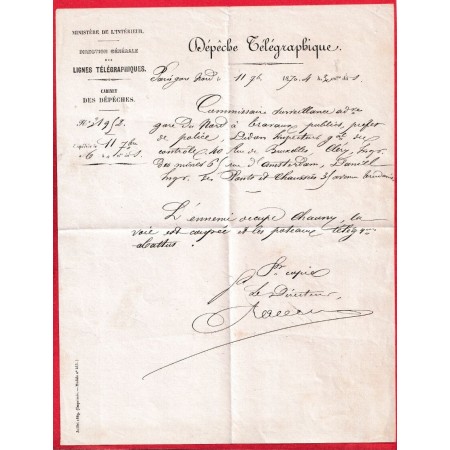 MINISTÈRE DE L'INTÉRIEUR.
DIRECTION GÉNÉRALE
DES
LIGNES TÉLÉGRAPHIQUES.
CABINET
DES DÉPÊCHES.
Dépêche Télégraphique.
Paris gare Nord 11 7bre 1870. 4
11 7bre
Commissaire surveillance adve
gare du Nord à travaux publics, préfet
de police, inspecteur gal
contrôle 40 rue de Bruxelles Cléry, Ingr
des mines 51 rue d'Amsterdam, Daniel
Ingr des Ponts et Chaussées 51 avenue
L'ennemi occupe Chauny, la
voie est coupée et les poteaux télégr
abattus.
Pr copie
Le Directeur,